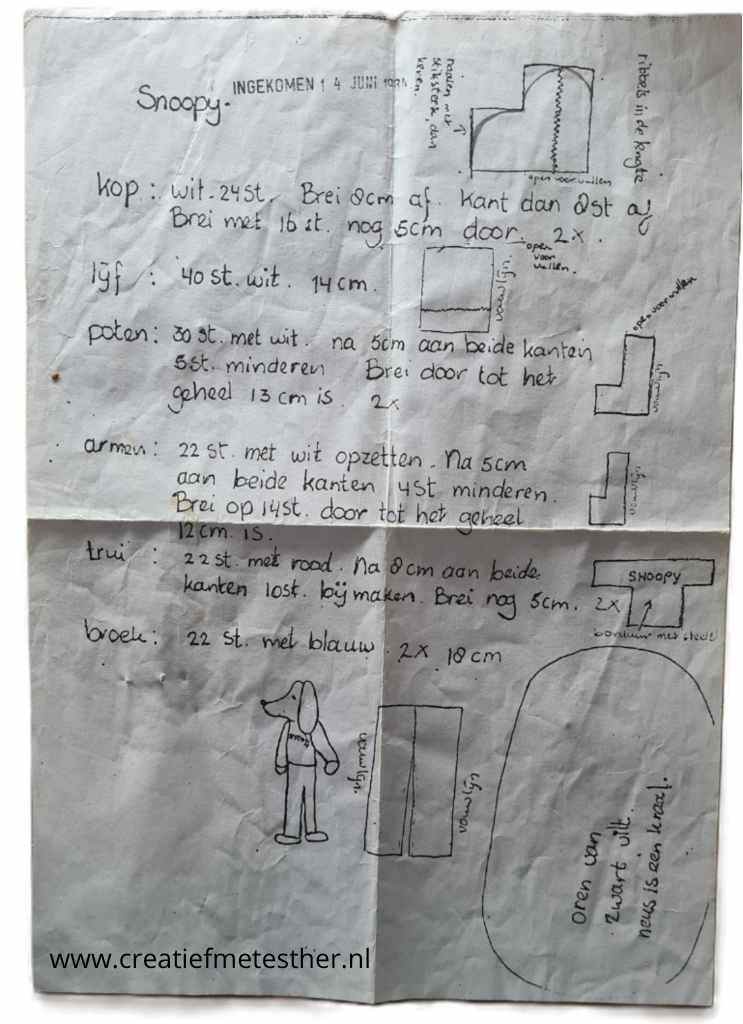 Snoopy.
INGEKOMEN 1 4 JUNI
naaien met
stiksteek, dan
keren.
open voor vullen
ribbels in de lengte
kop : wit. 24 st. Brei 8cm af. Kant dan 8st af
Brei met 16 st. nog 5cm door. 2x.
lijf : 40 st. wit. 14 cm.
open
voor
vullen.
vouwlijn.
poten: 30 st. met wit. na 5cm aan beide kanten
5st. minderen Brei door tot het
geheel 13 cm is. 2x
open voor vullen
vouwlijn
armen: 22 st. met wit opzetten. Na 5cm
aan beide kanten 4st minderen.
Brei op 14st. door tot het geheel
12 cm. is.
vouwlijn
trui : 22 st. met rood. Na 8cm aan beide
kanten 10st. bij maken. Brei nog 5cm. 2x
SNOOPY
borduur met steel
broek: 22 st. met blauw. 2x 18 cm
vouwlijn.
vouwlijn
oren van
zwart vilt.
neus is een kraal.
www.creatiefmetesther.nl